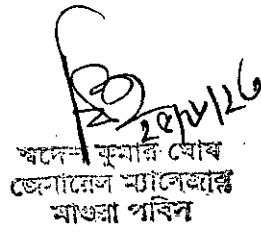 ২৫/৮/২৬
স্বদেশ কুমার ঘোষ
জেনারেল ম্যানেজার
মাগুরা পবিস